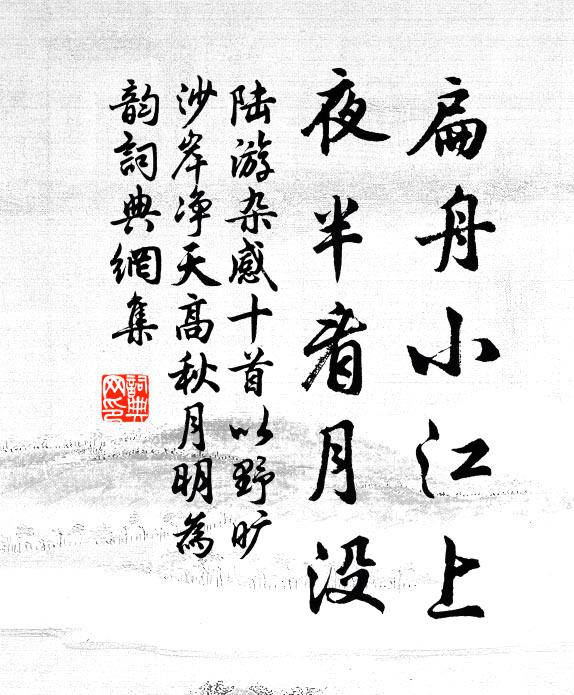 扁舟小江上
夜半看月没
陆游杂感十首以野旷
沙岸净天高秋月明為
韵詞典網集
詞典
网印